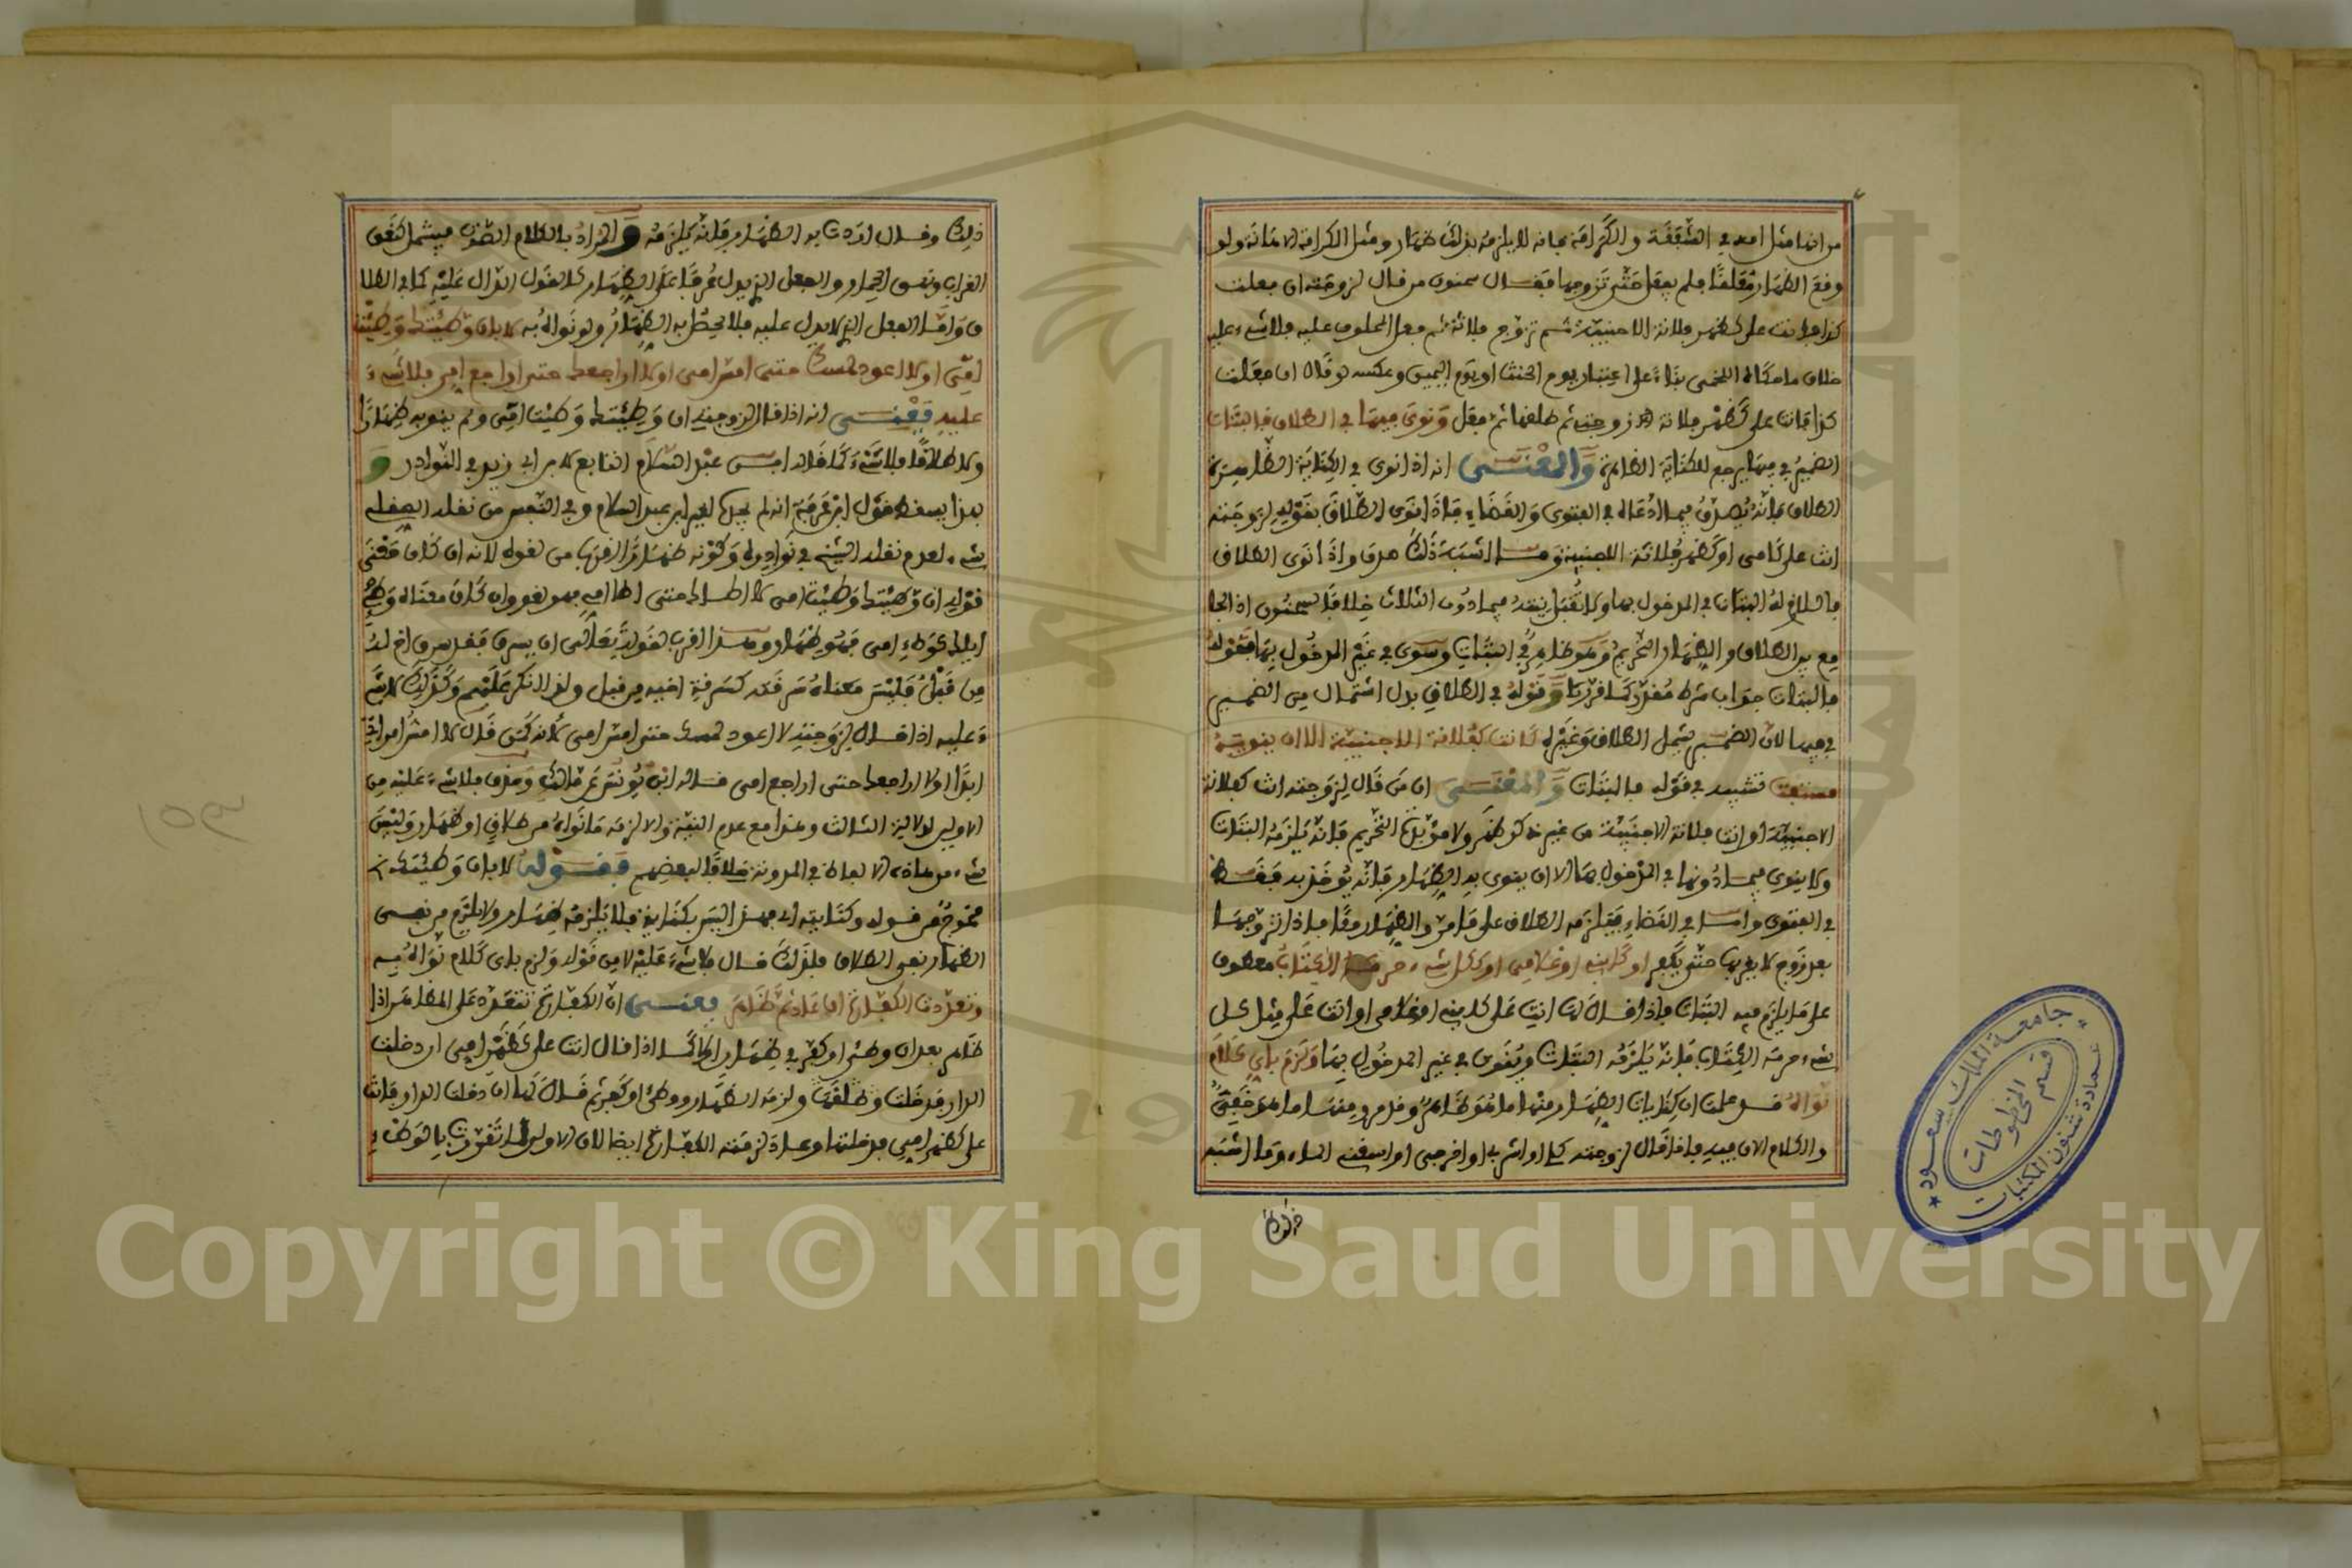 من انها مثل امه في الشفقة والكرامة فانه لا يلزمه بذلك ظهار ومثل الكرامة الامانة ولو
وقع الظهار معلقا فلم يفعل حتى تزوجها فقال سحنون من قال لزوجته ان فعلت
كذا فانت علي كظهر فلانة الاجنبية ثم تزوج فلانة ثم فعل المحلوف عليه فلا شيء عليه
خلاف ما حكاه اللخمي بناء على اعتبار يوم الحنث او يوم اليمين وعكسه لو قال ان فعلت
كذا فانت علي كظهر فلانة زوجته ثم طلقها ثم فعل ونوى فيها في الطلاق فالبتات
الضمير في فيها يرجع للكناية الظاهرة والمعنى انه اذا نوى في الكناية الظاهرة
الطلاق فانه يصدق فيما ادعاه في الفتوى والقضاء فاذا نوى الطلاق بقوله لزوجته
انت علي كامي او كظهر فلانة الاجنبية وما اشبه ذلك صدق واذا نوى الطلاق
فاللازم له البتات في المدخول بها ولا تقبل نيته فيما دون الثلاث خلافا لسحنون اذ الجا
مع بين الطلاق والظهار التحريم وهو ظاهر في البتات وينوى في غير المدخول بها فقوله
فالبتات جواب شرط مقدر كما قررنا وقوله في الطلاق بدل اشتمال من الضمير
في فيها لان الضمير يشمل الطلاق وغيره كانت كفلانة الاجنبية الا ان ينويه
مستفت تشبيه في قوله فالبتات والمعنى ان من قال لزوجته انت كفلانة
الاجنبية او انت فلانة الاجنبية من غير ذكر ظهر ولا مؤبدة التحريم فانه يلزمه البتات
ولا ينوى فيما دونها في المدخول بها الا ان ينوي به الظهار فانه يؤخذ به فقط
في الفتوى واما في القضاء فيلزمه الطلاق على ما مر والظهار معا فاذا تزوجها
بعد زوج لا يقربها حتى يكفر او كابني او غلامي او ككل شيء حرمه الكتاب معطوف
على ما يلزم فيه البتات فاذا قال لها انت علي كابني او غلامي او انت علي مثل كل
شيء حرمه الكتاب فانه يلزمه البتات وينوى في غير المدخول بها ولزم باي كلام
نواه قد علمت ان كنايات الظهار منها ما هو ظاهر وقد مر ومنها ما هو خفي
والكلام الان فيه فاذا قال لزوجته كلي او اشربي او اخرجي او اسقني الماء وما اشبه
ذلك
ذلك وقال اردت به الظهار فانه يلزمه والمراد بالكلام الصوت فيشمل نعق
الغراب ونهيق الحمار والفعل الذي يدل عرفا على الظهار كالقول الدال عليه كما في الطلا
ق واما الفعل الذي لا يدل عليه فلا يحصل به الظهار ولو نواه به لا بان وطئتك وطئت
امي او لا اعود لمسك حتى امس امي او لا اراجعك حتى اراجع امي فلا شيء
عليه يعني انه اذا قال لزوجته ان وطئتك وطئت امي ولم ينو به ظهارا
ولا طلاقا فلا شيء كما قاله ابن عبد السلام التابع لابن ابي زيد في النوادر و
بهذا يسقط قول ابن عرفة انه لم يجده لغير ابن عبد السلام وفي النفس من نقله الصقلي
شيء لعدم نقله الشيخ في نوادره وكونه ظهارا اقرب من لغوه لانه ان كان معنى
قوله ان وطئتك وطئت امي لا اطأك حتى اطأ امي فهو لغو وان كان معناه وطئي
اياك كوطء امي فهو ظهار وهذا اقرب لقوله تعالى ان يسرق فقد سرق اخ له
من قبل فليس معناه سرقته كسرقة اخيه من قبل ولذا انكر عليهم وكذلك لا شي
ء عليه اذا قال لزوجته لا اعود لمسك حتى امس امي لانه كمن قال لا امس امراتي
ابدا او لا اراجعك حتى اراجع امي قاله ابن يونس عن مالك وحذف فلا شيء عليه من
الاولين لدلالة الثالث وهذا مع عدم النية والا لزمه ما نواه من طلاق او ظهار وليس
شيء من هذه الالفاظ في المدونة خلافا لبعضهم فقوله لا بان وطئتك الخ
مخرج من قوله وكنايته اي فهذا ليس بكناية فلا يلزمه ظهار ولا يلزم من نفي
الظهار نفي الطلاق فلذلك قال فلا شيء عليه لا من قوله ولزم باي كلام نواه به
وتعددت الكفارة ان عاد ثم ظاهر يعني ان الكفارة تتعدد على المظاهر اذا
ظاهر بعد ان وطئ او كفر في ظهار اولا كما اذا قال انت علي كظهر امي ان دخلت
الدار فدخلت وطلقها ولزمه الظهار ووطئ او كفر ثم قال لها ان دخلت الدار فانت
علي كظهر امي فدخلتها وعاد لزمته الكفارة ايضا لان الاولى لما تقررت بالوطء
١٥٣
جامعة الملك سعود
عمادة شئون المكتبات
قسم المخطوطات
Copyright © King Saud University